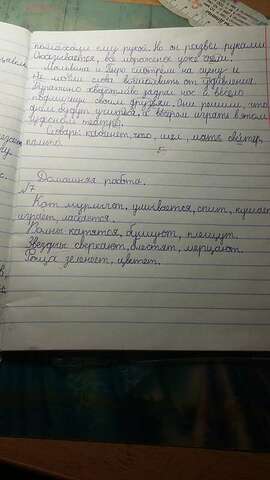 помахали ему рукой. Но он развёл руками.
Оказывается, всё мороженое уже съели!
Мальвина и Пьеро смотрели на сцену и
не могли слова вымолвить от удивления.
Буратино хвастливо задрал нос и весело
подмигнул своим друзьям. Они решили, что
днём будут учиться, а вечером играть в этом
чудесном театре.
Словарь: кабинет, что, шёл, свитер,
пальто.
5
Домашняя работа.
№7
Кот мурлычет, умывается, спит, кушает
играет, ласкается.
Волны катятся, бушуют, плещут.
Звёзды сверкают, блестят, мерцают.
Роща зеленеет, цветёт.